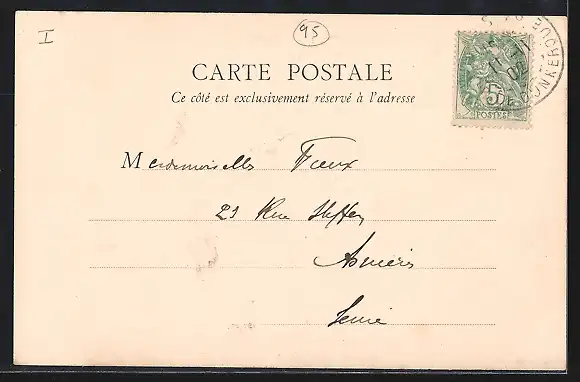 I
95
CARTE POSTALE
Ce côté est exclusivement réservé à l'adresse
5c
POSTES
Mademoiselle Fieux
23 Rue Steffen
Asnières
Seine